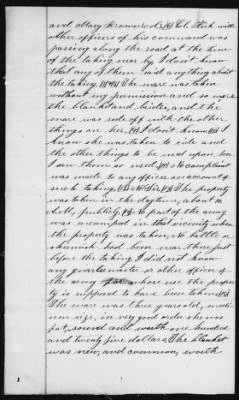 and Mary Brownlock Col. Fish with
other officers of his command was
passing along the road at the time
of the taking near by. I don't know
that any of them said anything about
the taking. The mare was taken
without my permission and so were
the blanket and bridle, and the
mare was rode off with the other
things on her. I don't know
I know she was taken to ride and
the other things to be used upon her.
I saw them so used. No complaint
was made to any officer on account of
such taking. No Sir. The property
was taken in the daytime, about
A.M., publicly. A part of the army
was encamped in that vicinity when
the property was taken. No battle or
skirmish had been near there just
before the taking. I did not know
any quartermaster or other officer of
the army for whose use the proper-
ty is supposed to have been taken.
The mare was three years old, medi-
um size, in very good order she was
fat, sound and worth one hundred
and twenty five dollars. The blanket
was new, and common, worth